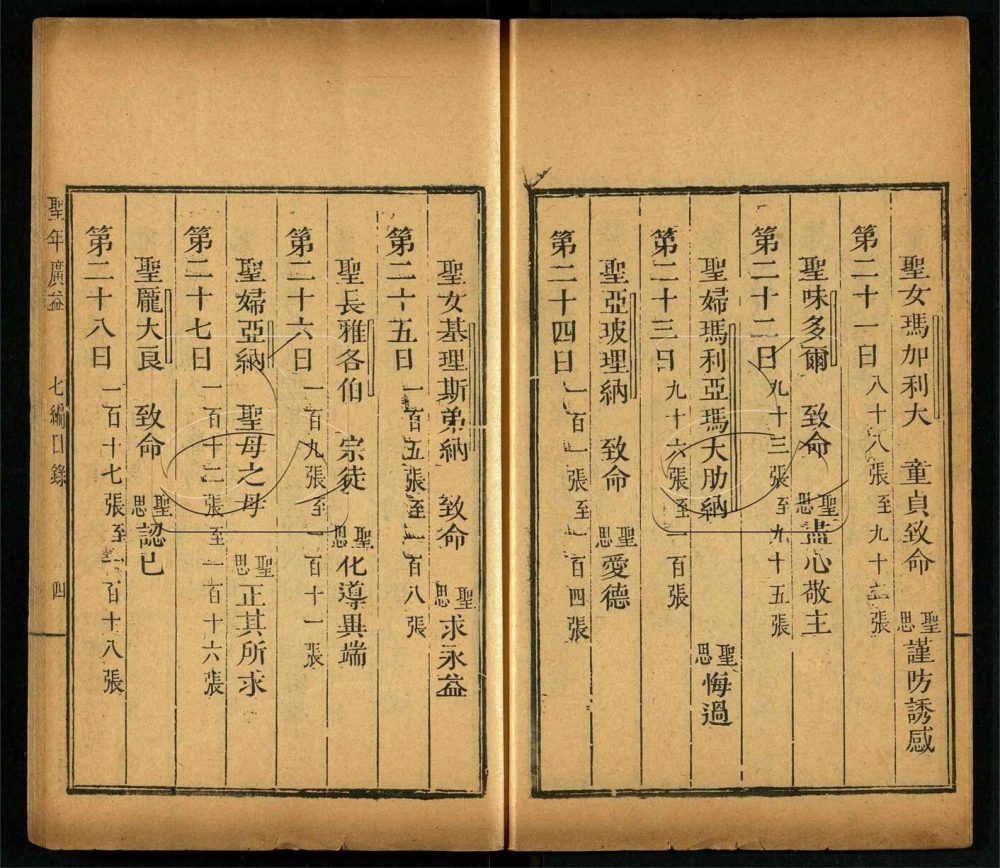 聖女瑪加利大　童貞致命　聖思謹防誘感
第二十一日八十八張至九十二張
聖味多爾　致命　聖思盡心敬主
第二十二日九十三張至九十五張
聖婦瑪利亞瑪大肋納　聖思悔過
第二十三日九十六張至一百張
聖亞玻理納　致命　聖思愛德
第二十四日一百一張至一百四張
聖女基理斯弟納　致命　聖思求永益
第二十五日一百五張至一百八張
聖長雅各伯　宗徒　聖思化導異端
第二十六日一百九張至一百十一張
聖婦亞納　聖母之母　聖思正其所求
第二十七日一百十二張至一百十六張
聖龎大良　致命　聖思認己
第二十八日一百十七張至一百十八張
聖年廣益　七編目錄　四